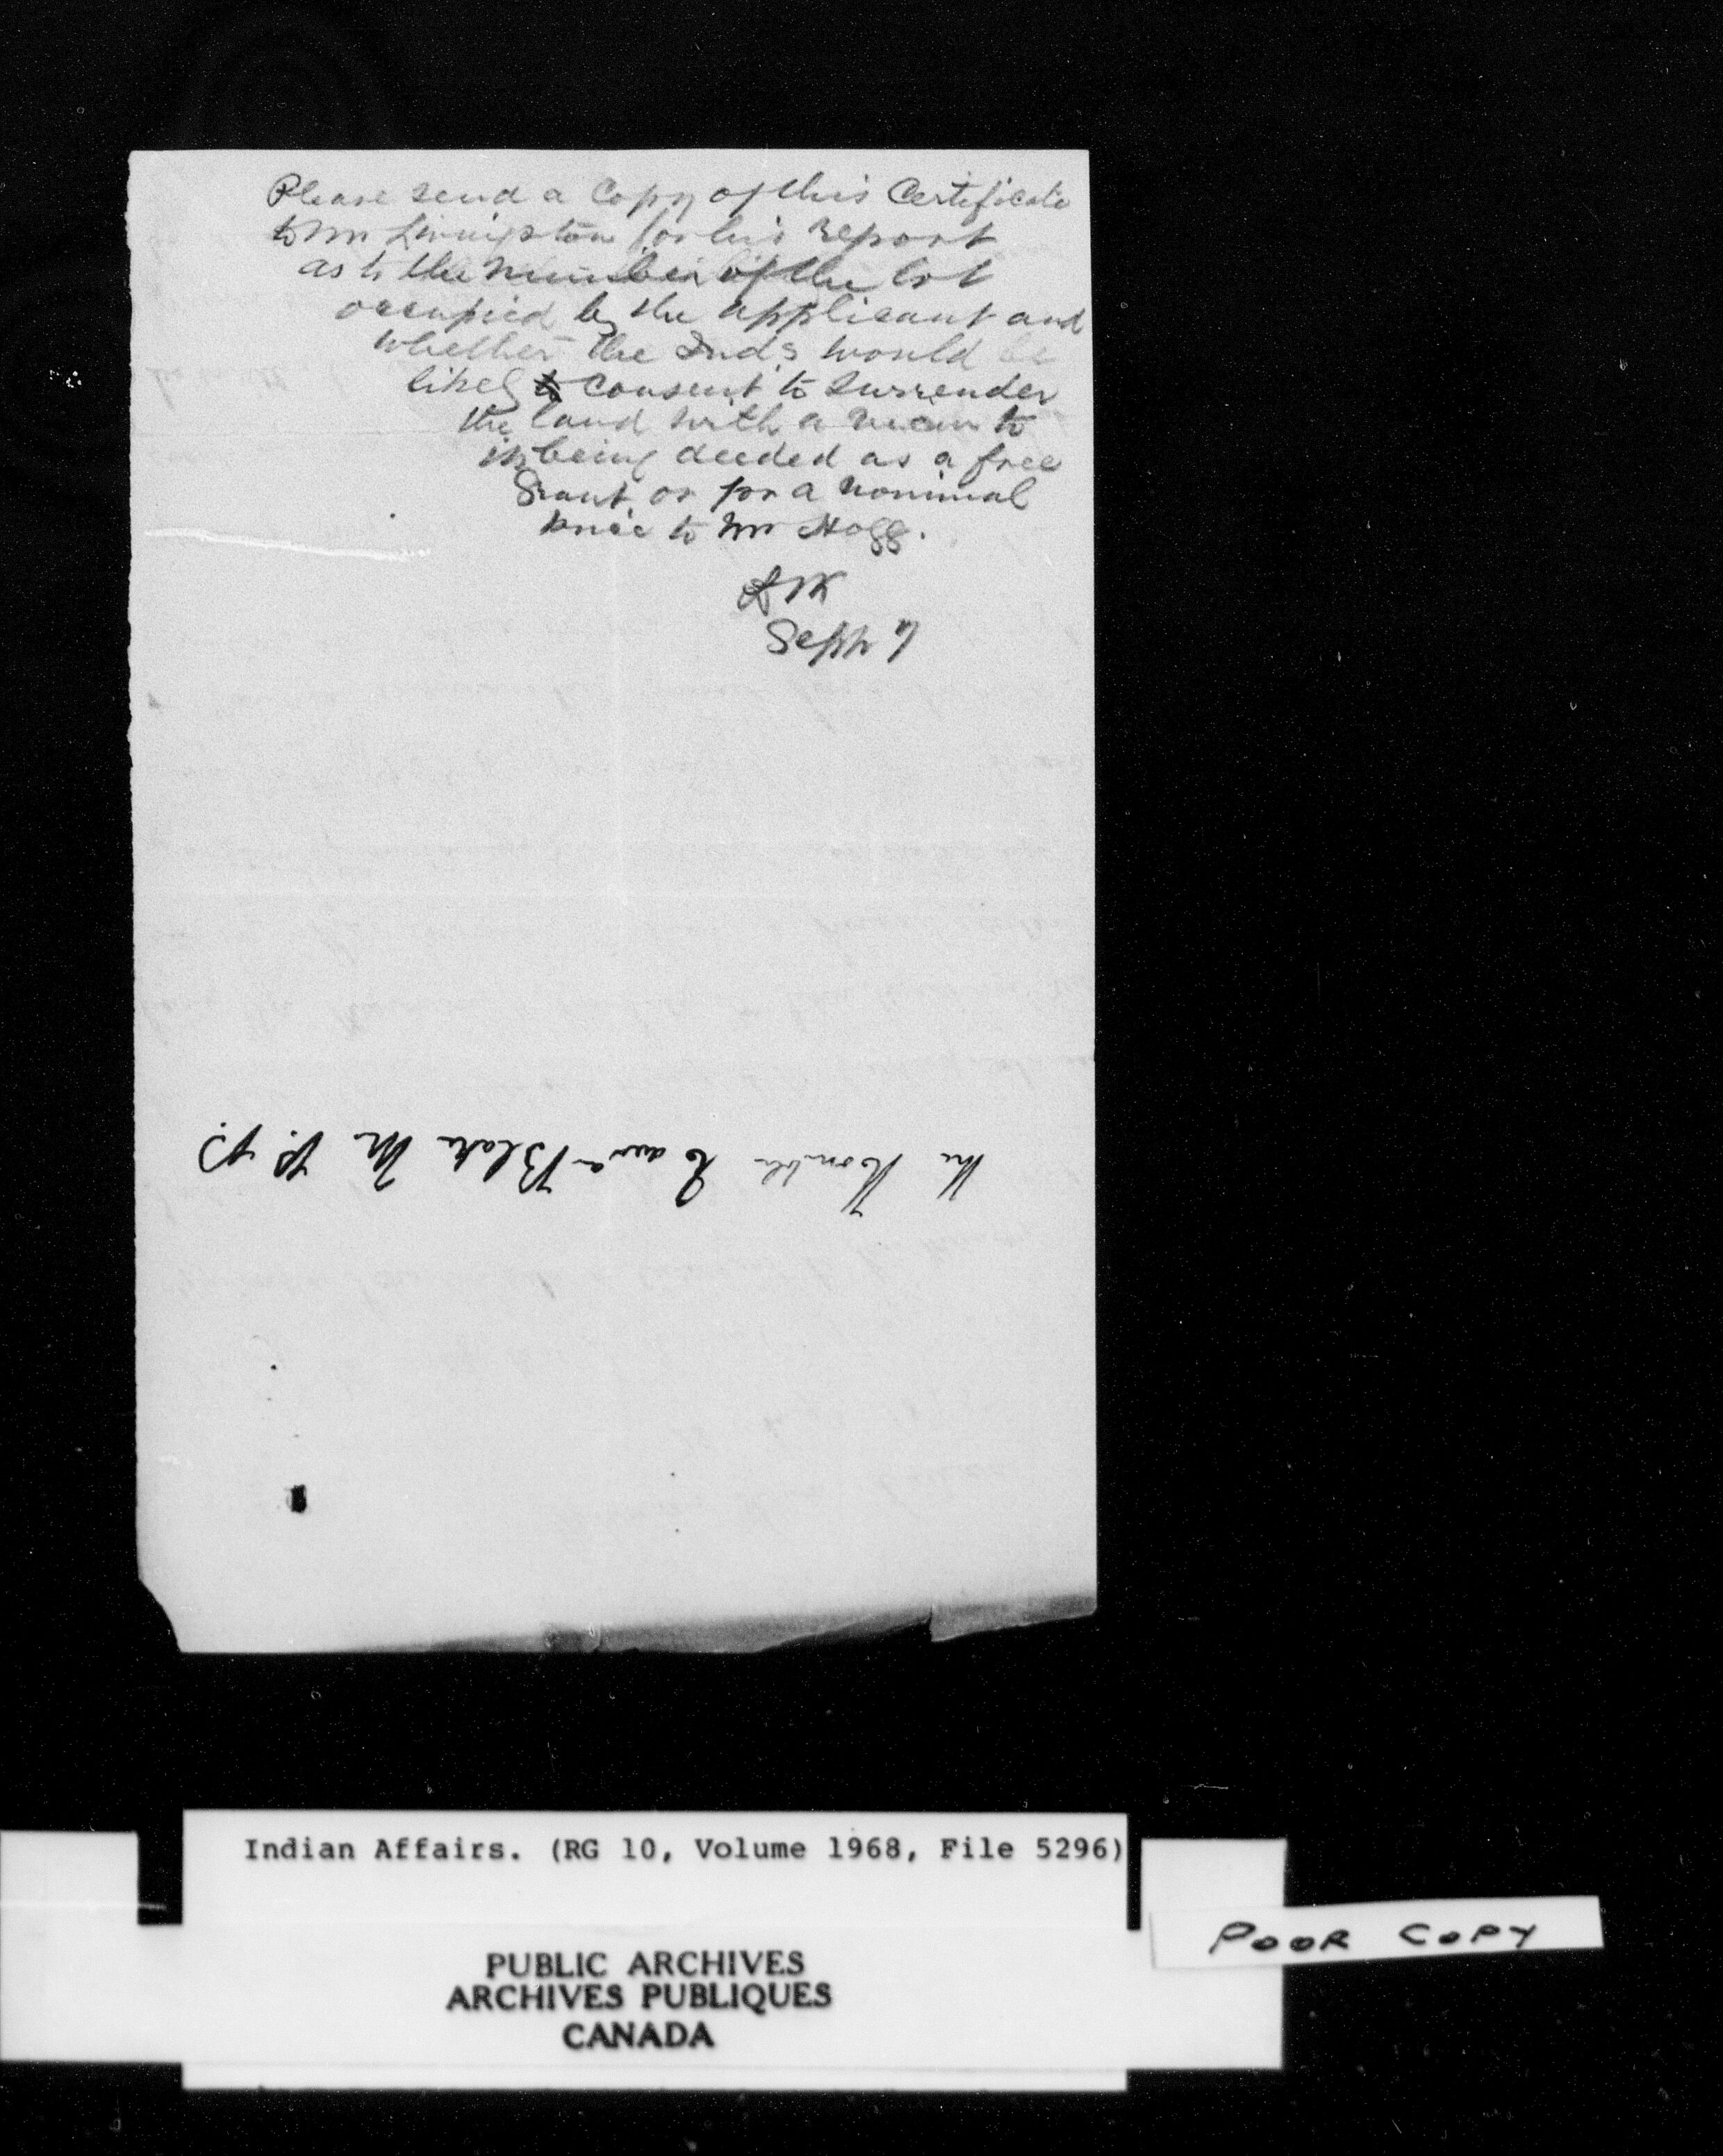 Please send a Copy of this Certificate
to Mr Livingston for his report
as to the number of the lot
occupied by the applicant and
whether the Inds would be
likely to consent to surrender
the land with a view to
its being deeded as a free
Grant or for a nominal
price to Mr Hogg.
LVK
Sept 7
The Honble Edwd Blake M. P. P.
Indian Affairs. (RG 10, Volume 1968, File 5296)
POOR COPY
PUBLIC ARCHIVES
ARCHIVES PUBLIQUES
CANADA